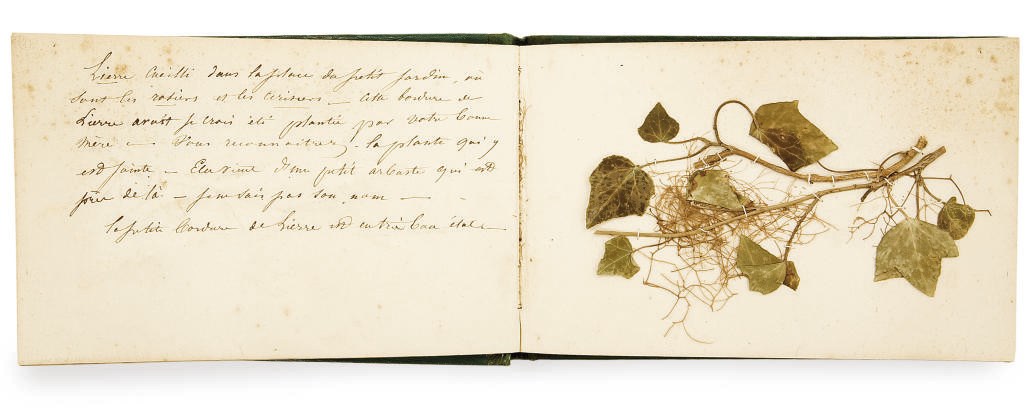 Lierre Cueilli dans la place du petit jardin, où
sont les rosiers et les cerisiers — cette bordure de
Lierre avait je crois été plantée par votre bonne
mère — Vous reconnaitrez la plante qui y
est jointe — Elle vient d'un petit arbuste qui est
près de là — je ne sais pas son nom —
la petite bordure de Lierre est en très bon état —